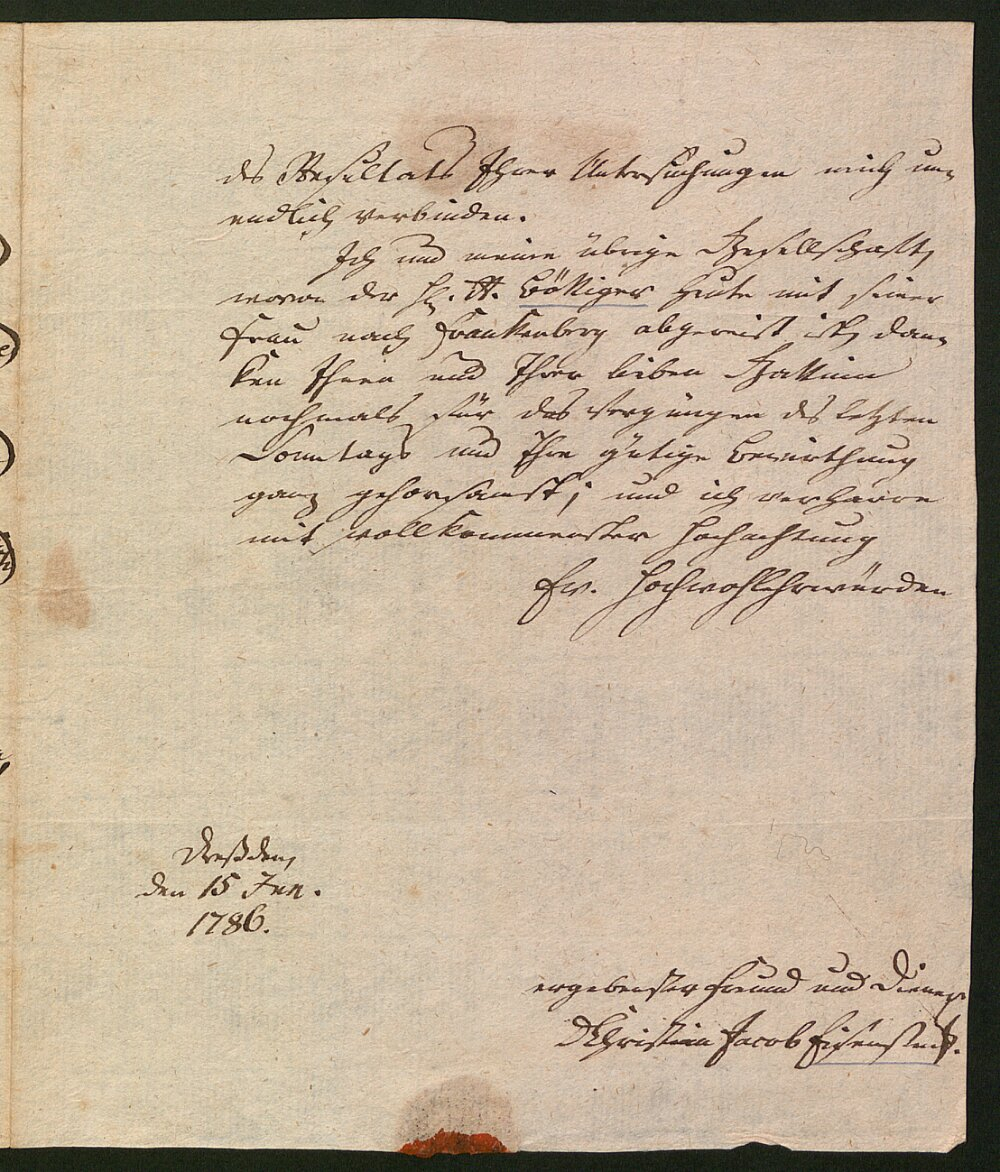 des Resultats Ihrer Untersuchungen mich un-
endlich verbinden.
Ich und meine übrige Gesellschaft,
wovon der H. Böttiger heute mit seiner
Frau nach Frankenberg abgereist ist, dan-
ken Ihnen und Ihrer lieben Gattinn
nochmals für das Vergnügen des letzten
Sonntags und Ihre gütige Bewirthung
ganz gehorsamst; und ich verharre
mit vollkommenster Hochachtung
Ew. Hochwohlehrwürden
Dreßden,
den 15 Jun.
1786.
ergebenster Freund und Diener
D Christian Jacob